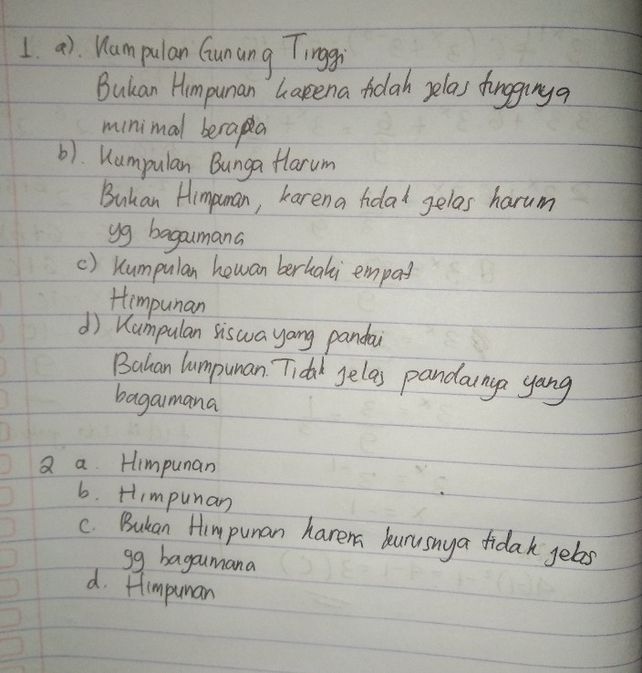 1. a). Kumpulan Gunung Tinggi
Bukan Himpunan karena tidak jelas tingginya
minimal berapa
b). Kumpulan Bunga Harum
Bukan Himpunan, karena tidak jelas harum
yg bagaimana
c) Kumpulan hewan berkaki empat
Himpunan
d) Kumpulan siswa yang pandai
Bukan himpunan. Tidak jelas pandainya yang
bagaimana
2 a. Himpunan
b. Himpunan
c. Bukan Himpunan karena kurusnya tidak jelas
yg bagaimana
d. Himpunan